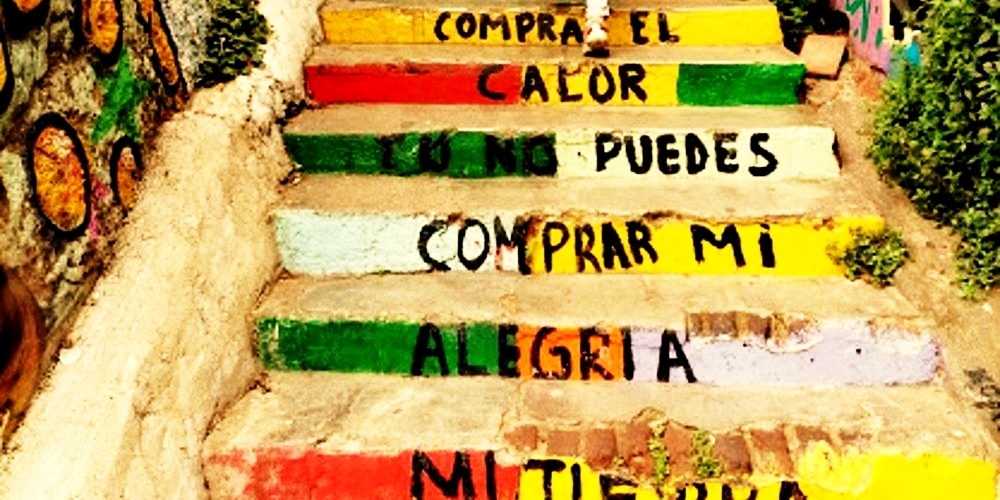 COMPRA EL
CALOR
TU NO PUEDES
COMPRAR MI
ALEGRIA
MI TIERRA